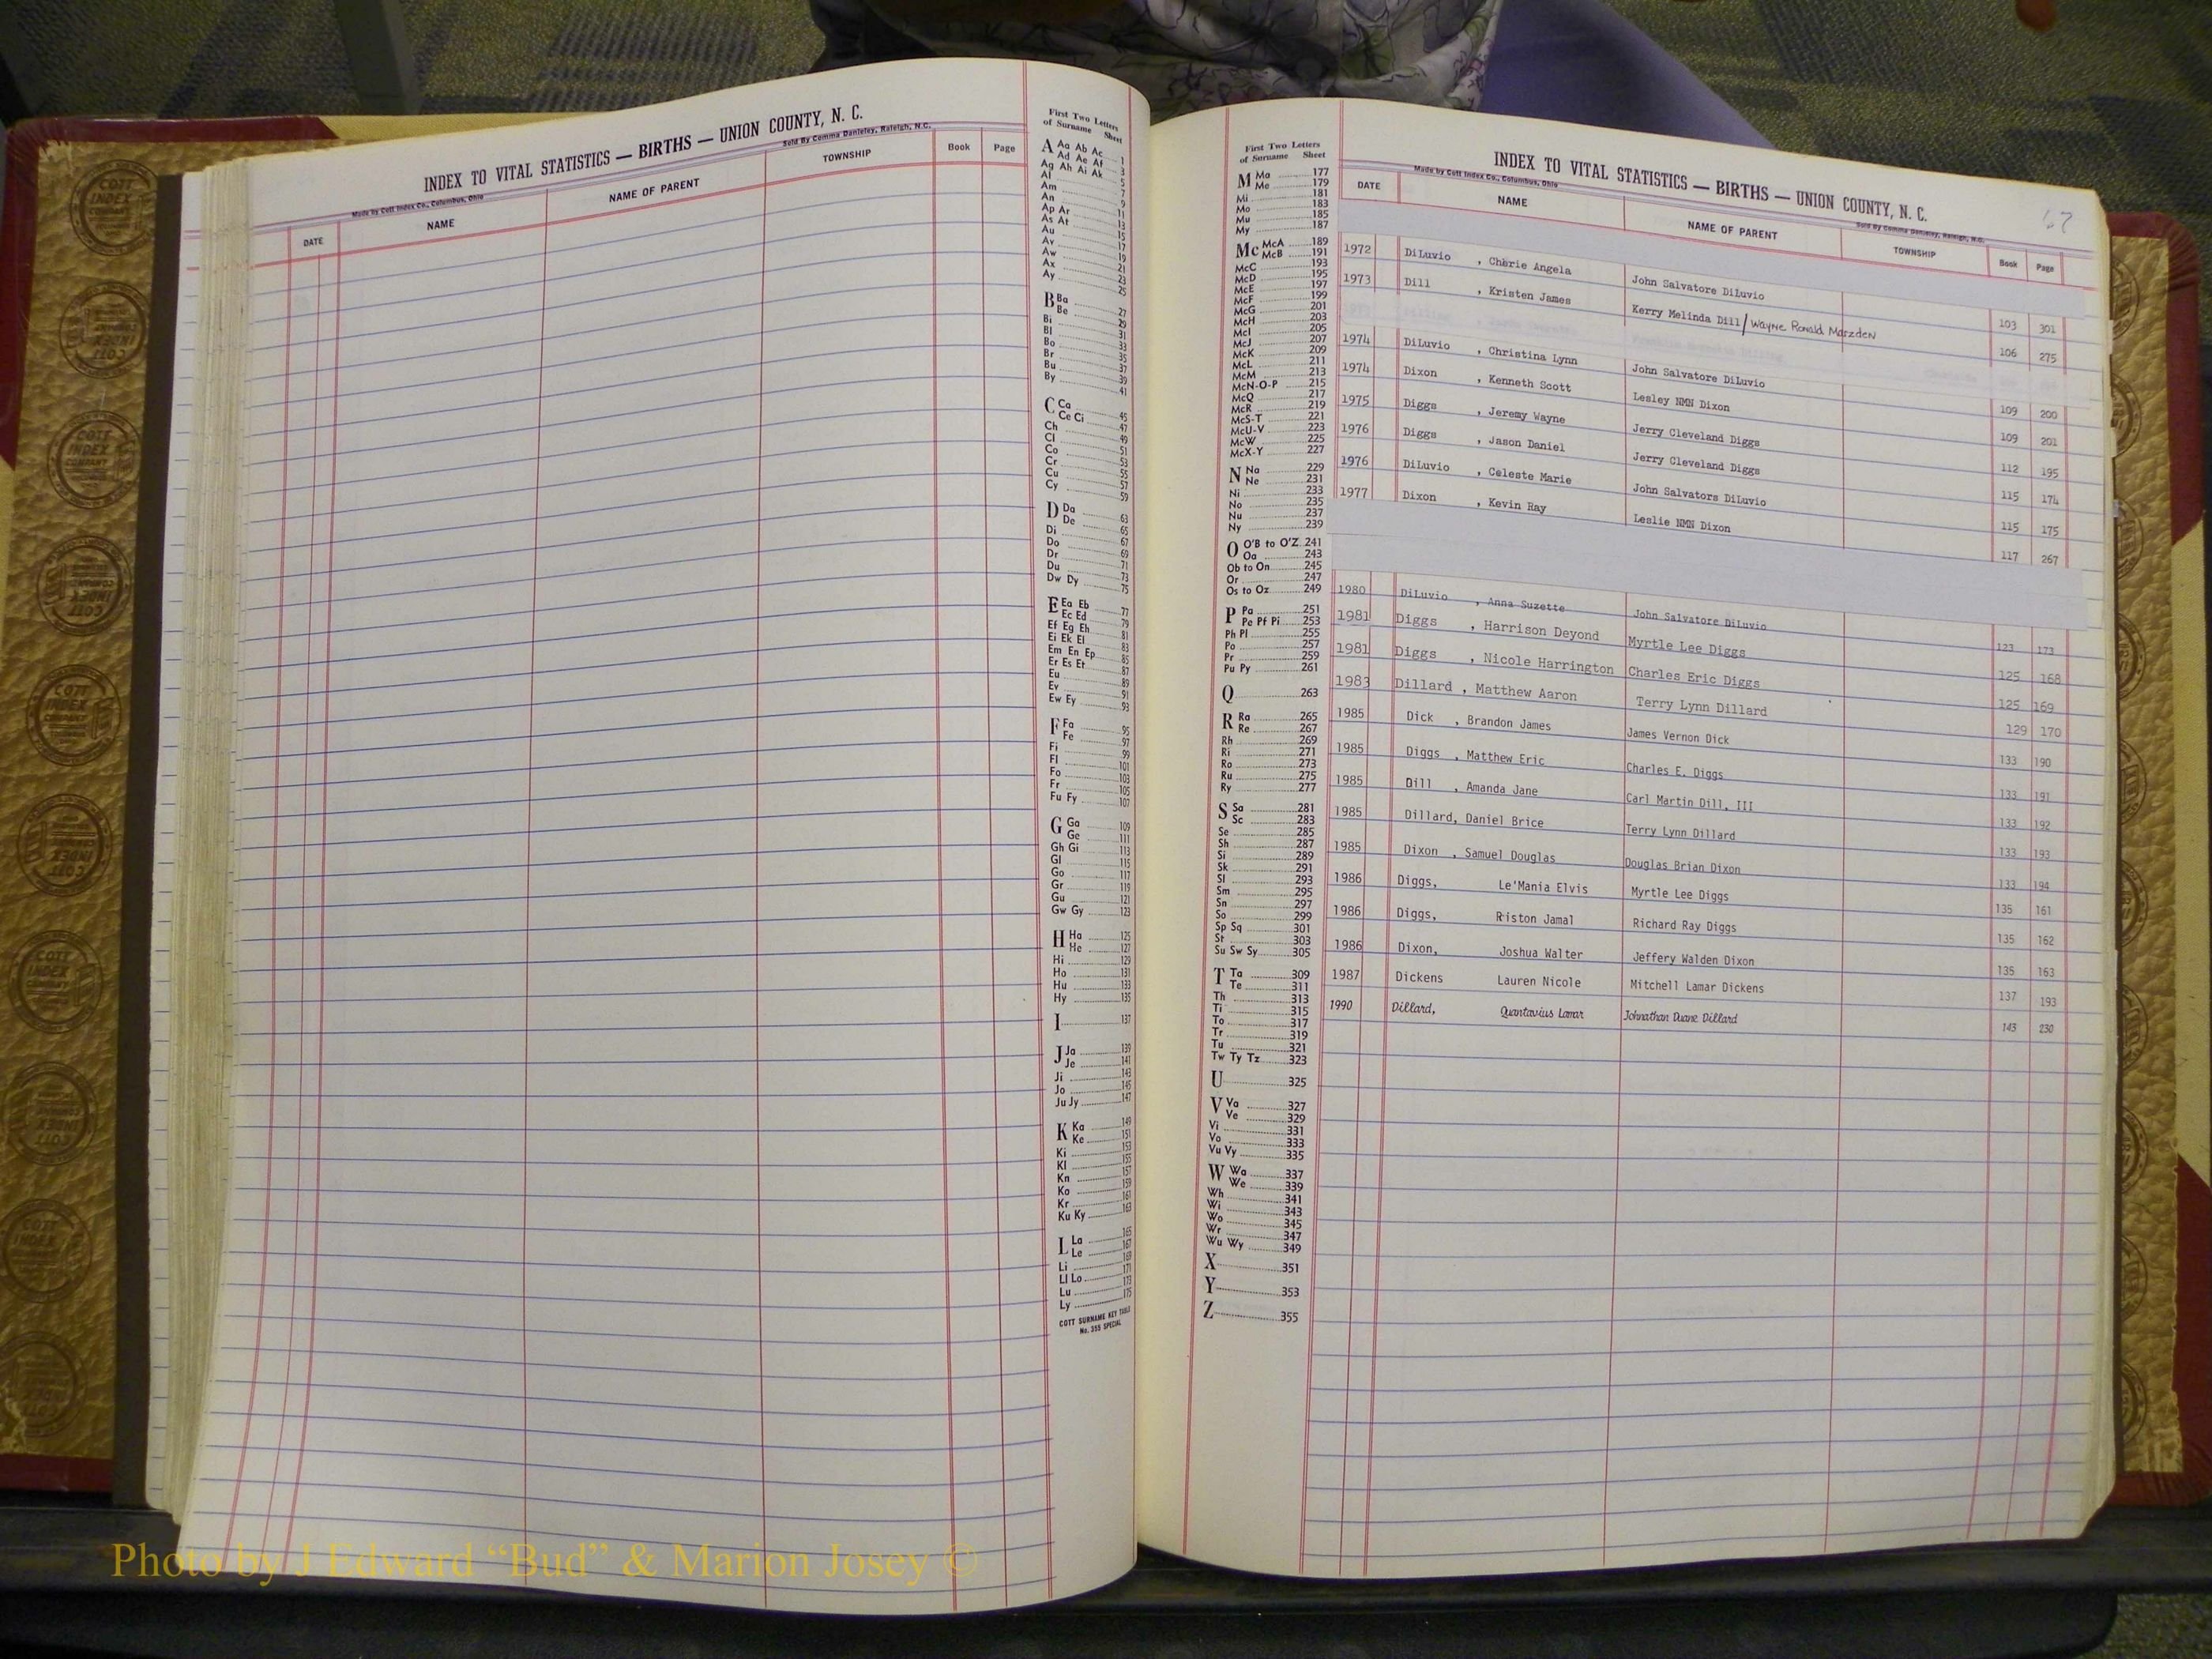 INDEX TO VITAL STATISTICS — BIRTHS — UNION COUNTY, N. C.
Made by Cott Index Co., Columbus, Ohio
Sold By Comma Danieley, Raleigh, N.C.
DATE NAME NAME OF PARENT TOWNSHIP Book Page
First Two Letters
of Surname Sheet
A Aa Ab Ac 1
Ad Ae Af 3
Ag Ah Ai Ak 5
Al 7
Am 9
An 11
Ap Ar 13
As At 15
Au 17
Av 19
Aw 21
Ax 23
Ay 25
B Ba 27
Be 29
Bi 31
Bl 33
Bo 35
Br 37
Bu 39
By 41
C Ca 45
Ce Ci 47
Ch 49
Cl 51
Co 53
Cr 55
Cu 57
Cy 59
D Da 63
De 65
Di 67
Do 69
Dr 71
Du 73
Dw Dy 75
E Ea Eb 77
Ec Ed 79
Ef Eg Eh 81
Ei Ek El 83
Em En Ep 85
Er Es Et 87
Eu 89
Ev 91
Ew Ey 93
F Fa 95
Fe 97
Fi 99
Fl 101
Fo 103
Fr 105
Fu Fy 107
G Ga 109
Ge 111
Gh Gi 113
Gl 115
Go 117
Gr 119
Gu 121
Gw Gy 123
H Ha 125
He 127
Hi 129
Ho 131
Hu 133
Hy 135
I 137
J Ja 139
Je 141
Ji 143
Jo 145
Ju Jy 147
K Ka 149
Ke 151
Ki 153
Kl 155
Kn 157
Ko 159
Kr 161
Ku Ky 163
L La 165
Le 167
Li 169
Ll Lo 171
Lu 173
Ly 175
COTT SURNAME KEY TABLE
No. 355 SPECIAL
First Two Letters
of Surname Sheet
M Ma 177
Me 179
Mi 181
Mo 183
Mu 185
My 187
Mc McA 189
McB 191
McC 193
McD 195
McE 197
McF 199
McG 201
McH 203
McI 205
McJ 207
McK 209
McL 211
McM 213
McN-O-P 215
McQ 217
McR 219
McS-T 221
McU-V 223
McW 225
McX-Y 227
N Na 229
Ne 231
Ni 233
No 235
Nu 237
Ny 239
O O'B to O'Z 241
Oa 243
Ob to On 245
Or 247
Os to Oz 249
P Pa 251
Pe Pf Pi 253
Ph Pl 255
Po 257
Pr 259
Pu Py 261
Q 263
R Ra 265
Re 267
Rh 269
Ri 271
Ro 273
Ru 275
Ry 277
S Sa 281
Sc 283
Se 285
Sh 287
Si 289
Sk 291
Sl 293
Sm 295
Sn 297
So 299
Sp Sq 301
St 303
Su Sw Sy 305
T Ta 309
Te 311
Th 313
Ti 315
To 317
Tr 319
Tu 321
Tw Ty Tz 323
U 325
V Va 327
Ve 329
Vi 331
Vo 333
Vu Vy 335
W Wa 337
We 339
Wh 341
Wi 343
Wo 345
Wr 347
Wu Wy 349
X 351
Y 353
Z 355
INDEX TO VITAL STATISTICS — BIRTHS — UNION COUNTY, N. C.
67
Made by Cott Index Co., Columbus, Ohio
Sold By Comma Danieley, Raleigh, N.C.
DATE NAME NAME OF PARENT TOWNSHIP Book Page
1972 DiLuvio , Cherie Angela John Salvatore DiLuvio 103 301
1973 Dill , Kristen James Kerry Melinda Dill / Wayne Ronald Marzden 106 275
1974 DiLuvio , Christina Lynn John Salvatore DiLuvio 109 200
1974 Dixon , Kenneth Scott Lesley NMN Dixon 109 201
1975 Diggs , Jeremy Wayne Jerry Cleveland Diggs 112 195
1976 Diggs , Jason Daniel Jerry Cleveland Diggs 115 174
1976 DiLuvio , Celeste Marie John Salvators DiLuvio 115 175
1977 Dixon , Kevin Ray Leslie NMN Dixon 117 267
1980 DiLuvio , Anna Suzette John Salvatore DiLuvio 123 173
1981 Diggs , Harrison Deyond Myrtle Lee Diggs 125 168
1981 Diggs , Nicole Harrington Charles Eric Diggs 125 169
1983 Dillard , Matthew Aaron Terry Lynn Dillard 129 170
1985 Dick , Brandon James James Vernon Dick 133 190
1985 Diggs , Matthew Eric Charles E. Diggs 133 191
1985 Dill , Amanda Jane Carl Martin Dill, III 133 192
1985 Dillard, Daniel Brice Terry Lynn Dillard 133 193
1985 Dixon , Samuel Douglas Douglas Brian Dixon 133 194
1986 Diggs, Le'Mania Elvis Myrtle Lee Diggs 135 161
1986 Diggs, Riston Jamal Richard Ray Diggs 135 162
1986 Dixon, Joshua Walter Jeffery Walden Dixon 135 163
1987 Dickens Lauren Nicole Mitchell Lamar Dickens 137 193
1990 Dillard, Quantavius Lamar Johnathan Duane Dillard 143 230
Photo by J Edward “Bud” & Marion Josey ©